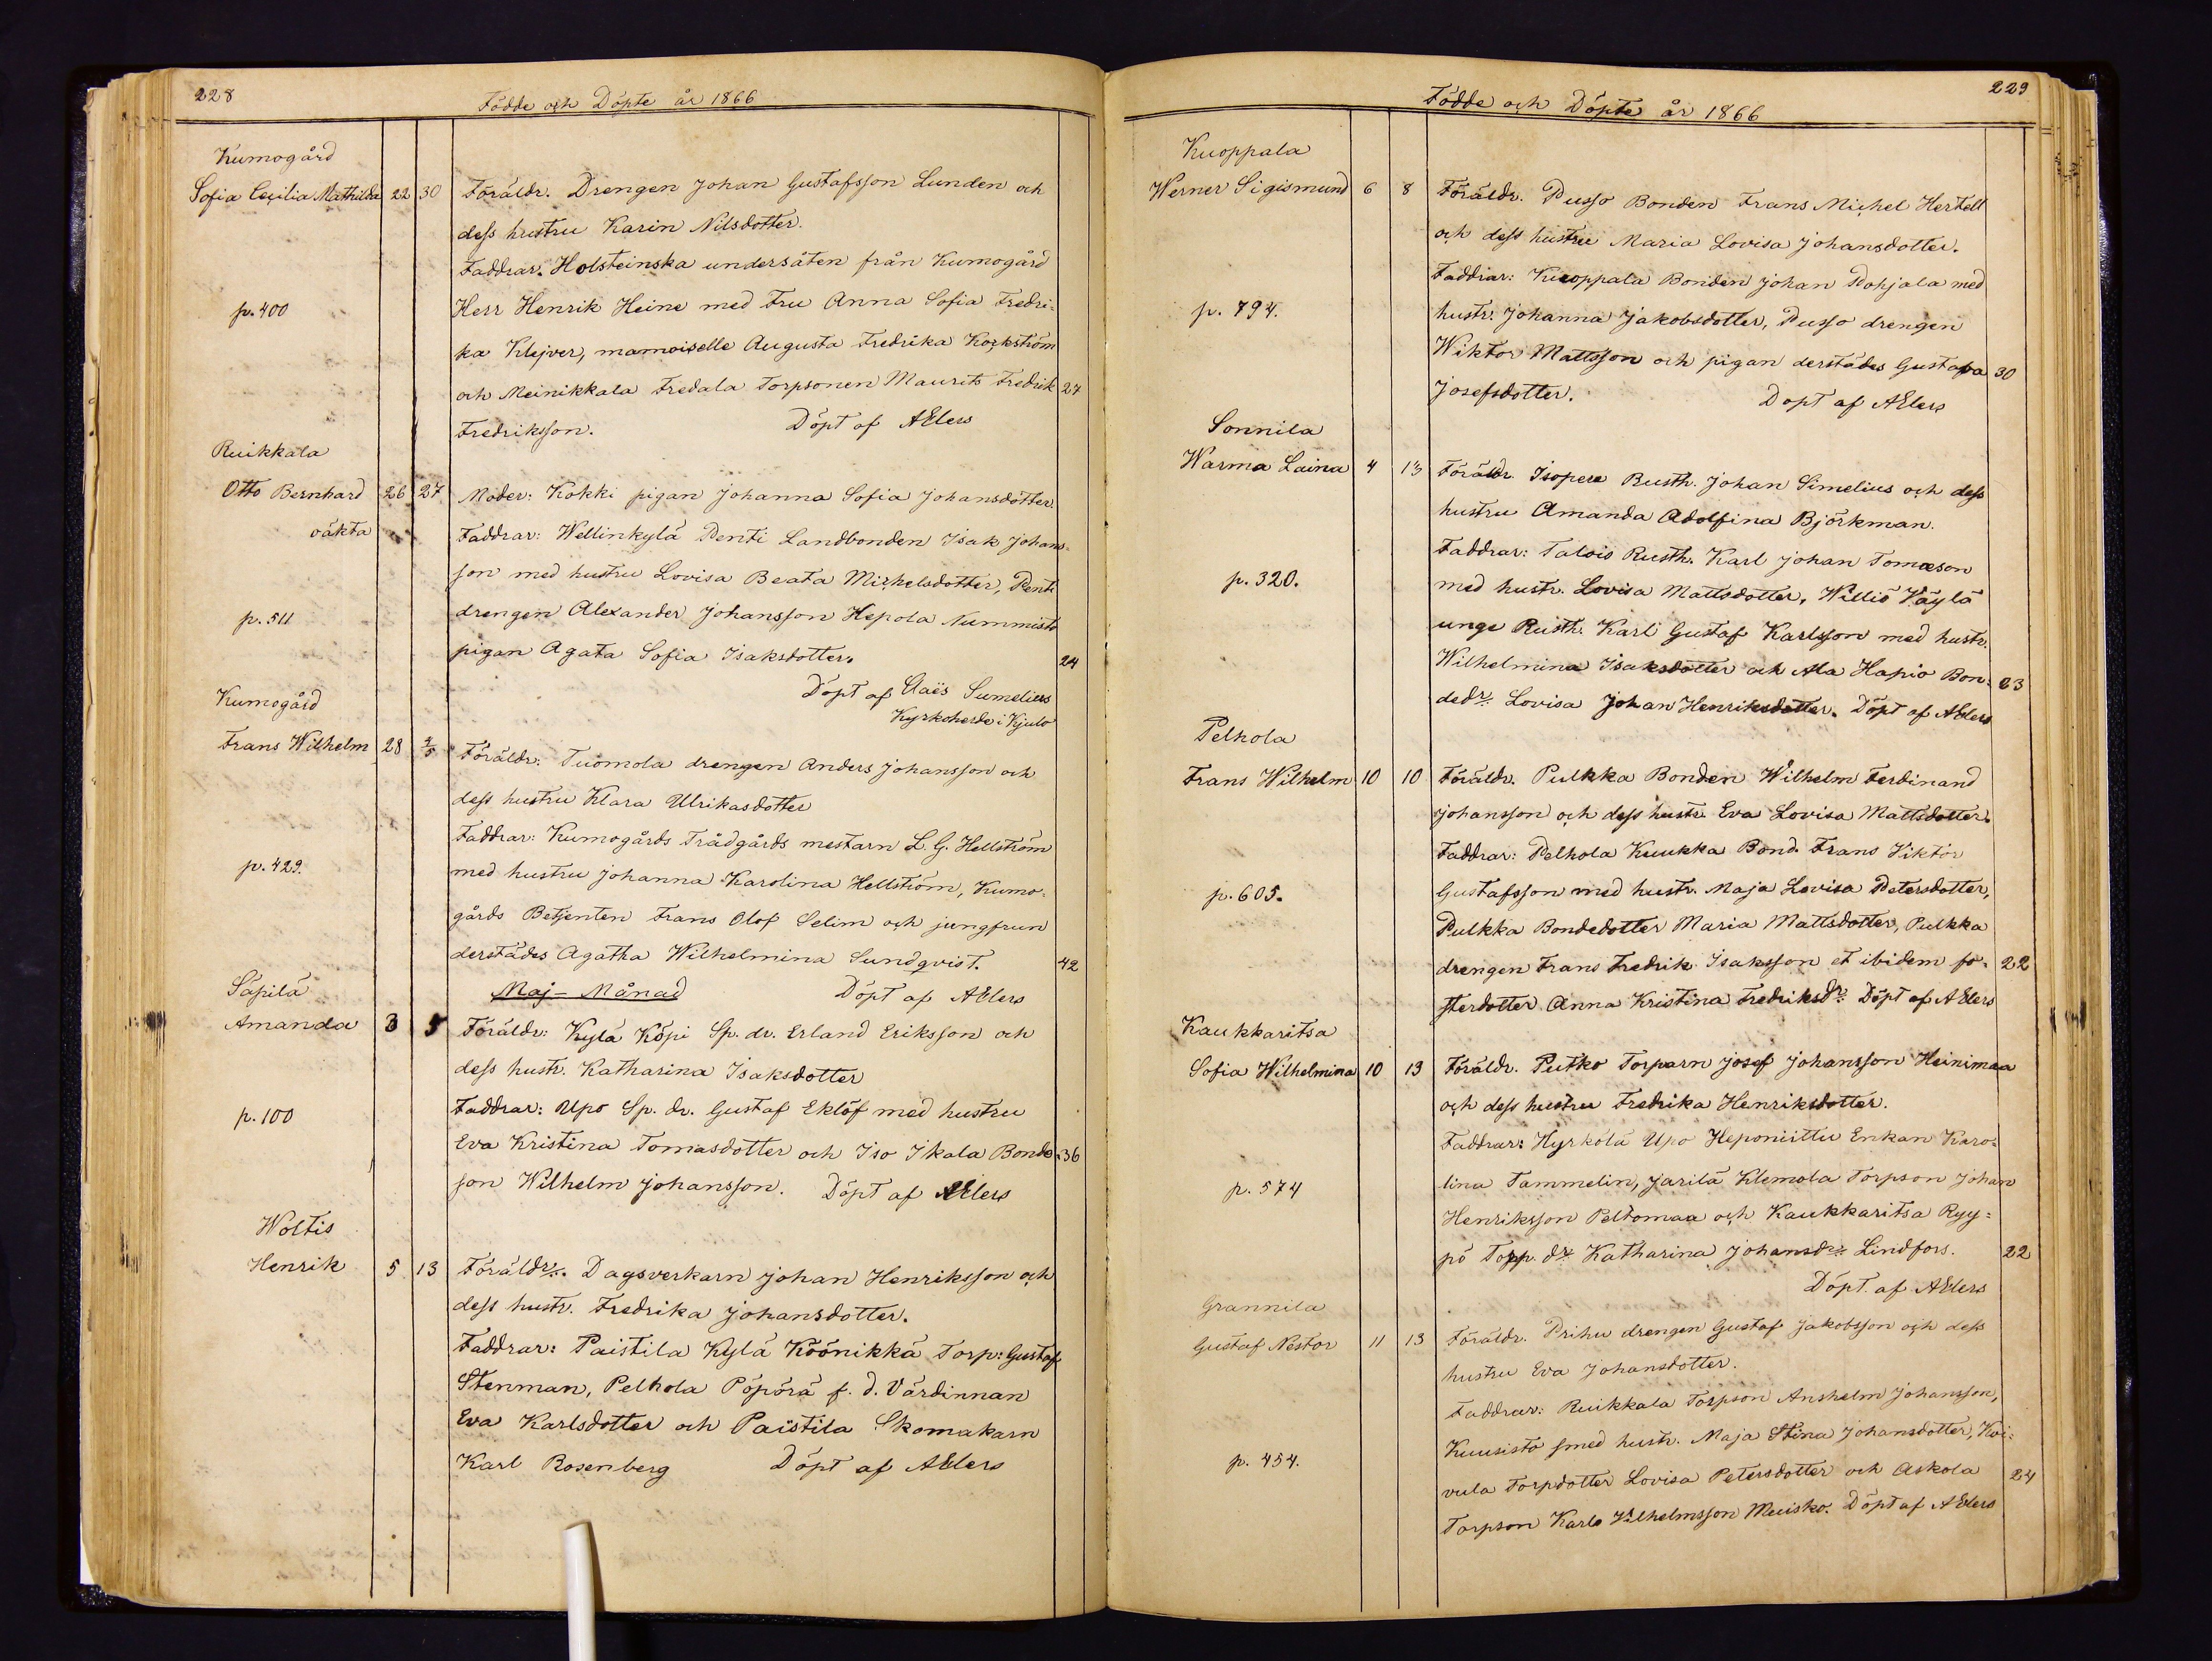 228
Födde och Döpte år 1866
Kumogård
Sofia Cecilia Mathilda 22 30 Föräldr. Drengen Johan Gustafsson Lunden och
dess hustru Karin Nilsdotter.
Faddrar. Holsteinska undersåten från Kumogård
p. 400 Herr Henrik Heine med Fru Anna Sofia Fredri-
ka Klejver, mamoiselle Augusta Fredrika Korkström
och Meinikkala Fredala Torpsonen Maurits Fredrik 27
Fredriksson. Döpt af AElers
Ruikkala
Otto Bernhard 26 27 Moder: Kokki pigan Johanna Sofia Johansdotter.
oäkta Faddrar: Wellinkylä Penti Landbonden Isak Johans-
son med hustru Lovisa Beata Michelsdotter, Penti
p. 511 drengen Alexander Johansson Hepola Nummisto
pigan Agata Sofia Isaksdotter. 24
Döpt af Claës Sumelius
Kyrkoherde i Kjulo
Kumogård
Frans Wilhelm 28 4/5 Föräldr: Tuomola drengen Anders Johansson och
dess hustru Klara Ulrikasdotter
Faddrar: Kumogårds Trädgårds mestarn L. G. Hellström
p. 429. med hustru Johanna Karolina Hellström, Kumo-
gårds Betjenten Frans Olof Selim och jungfrun
derstädes Agatha Wilhelmina Sundqvist. 42
Maj-Månad Döpt af AElers
Säpilä
Amanda 3 5 Föräldr: Kylä Köpi Sp. dr. Erland Eriksson och
dess hustr. Katharina Isaksdotter
p. 100 Faddrar: Upo Sp. dr. Gustaf Eklöf med hustru
Eva Kristina Tomasdotter och Iso Ikala Bonde- 36
son Wilhelm Johansson. Döpt af AElers
Woltis
Henrik 5 13 Föräldr. Dagsverkarn Johan Henriksson och
dess hustr. Fredrika Johansdotter.
Faddrar: Paistila Kylä Köönikkä Torp: Gustaf
Stenman, Pelhola Pöpörä f. d. Värdinnan
Eva Karlsdotter och Paistila Skomakarn
Karl Rosenberg Döpt af AElers
229
Födde och Döpte år 1866
Kuoppala
Werner Sigismund 6 8 Föräldr. Pusso Bonden Frans Michel Hertell
och dess hustru Maria Lovisa Johansdotter.
Faddrar: Kuoppala Bonden Johan Pohjala med
p. 794. hustr. Johanna Jakobsdotter, Pusso drengen
Wiktor Mattsson och pigan derstädes Gustava 30
Josefsdotter. Döpt af AElers
Sonnila
Warma Laina 4 13 Föräldr. Isopere Rusth. Johan Simelius och dess
hustru Amanda Adolfina Björkman.
Faddrar: Talois Rusth. Karl Johan Tomæson
p. 320. med hustr. Lovisa Mattsdotter, Willio Väylä
unge Rusth. Karl Gustaf Karlsson med hustr.
Wilhelmina Isaksdotter och Ala Hapio Bon- 23
dedr. Lovisa Johan Henriksdotter. Döpt af AElers
Pelhola
Frans Wilhelm 10 10 Föräldr. Pulkka Bonden Wilhelm Ferdinand
Johansson och dess hustr. Eva Lovisa Mattsdotter.
Faddrar: Pelhola Kuukka Bond. Frans Viktor
p. 605. Gustafsson med hustr. Maja Lovisa Petersdotter,
Pulkka Bondedotter Maria Mattsdotter, Pulkka
drengen Frans Fredrik Isaksson et ibidem fo- 22
sterdotter Anna Kristina Fredriksdr. Döpt af AElers
Kaukkaritsa
Sofia Wilhelmina 10 13 Föräldr. Putko Torparn Josef Johansson Heinimaa
och dess hustru Fredrika Henriksdotter.
Faddrar: Hyrkölä Upo Heponiittu Enkan Karo-
p. 574 lina Tammelin, Jarilä Klemola Torpson Johan
Henriksson Peltomaa och Kaukkaritsa Ryy-
pö Torp. dr. Katharina Johansdr. Lindfors. 22
Döpt af AElers
Grannila
Gustaf Nestor 11 13 Föräldr. Prihu drengen Gustaf Jakobsson och dess
hustru Eva Johansdotter.
Faddrar: Ruikkala Torpson Anshelm Johansson,
Kuusisto smed hustr. Maja Stina Johansdotter, Koi-
p. 454. vula Torpdotter Lovisa Petersdotter och Askola 24
Torpson Karl Wilhelmsson Muisko. Döpt af AElers